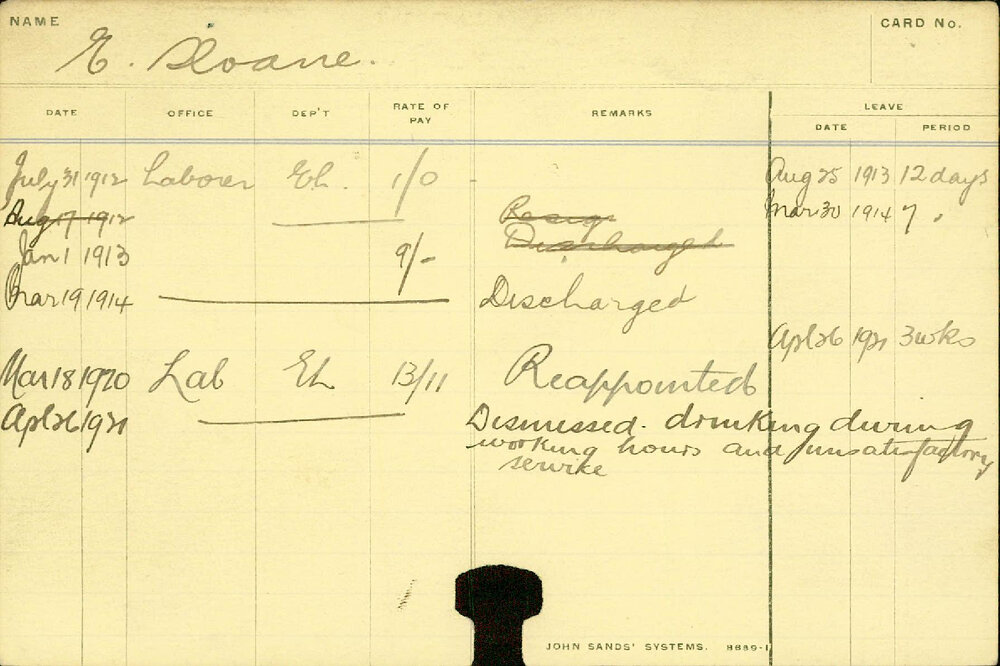 NAME
CARD No.
E. Sloane.
DATE OFFICE DEP'T RATE OF PAY REMARKS LEAVE
DATE PERIOD
July 31 1912 Laborer EL. 1/0 - Aug 25 1913 12 days
Aug 17 1912 Resig Mar 30 1914 7 "
Discharged
Jan 1 1913 9/-
Mar 19 1914 Discharged
Apl 26 1921 3 wks
Mar 18 1920 Lab EL 13/11 Reappointed
Apl 26 1921 Dismissed. drinking during
working hours and unsatisfactory
service
JOHN SANDS' SYSTEMS. 8689-1